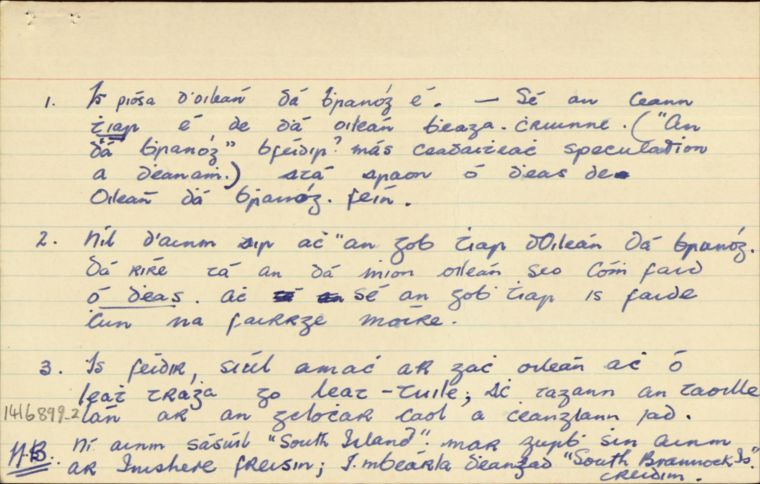 1. Is píosa d'oileán dá ḃranóg é. — Sé an ceann
ṫiar é de dá oileán ḃeaga. cruinne. ("An
dá ḃranóg" bféidir? más ceadaiṫeaċ speculation
a ḋéanaṁ.) atá araon ó ḋeas de
Oileán dá ḃranóg. féin.
2. Níl d'ainm air aċ "an gob ṫiar dOileán Dá ḃranóg.
Dá ríre tá an dá ṁion oileán seo cóṁ fad
ó ḋeas. Aċ sé an gob ṫiar is faide
ċun na fairrge móire.
3. Is féidir, siúl amaċ ar gaċ oileán aċ ó
leaṫ tráġa go leaṫ-ṫuile; aċ tagann an taoille
lán ar an gcloċar caol a ċeanglann iad.
1416899-2
N.B. Ní ainm sásúil "South Island". mar gurb sin ainm
ar Inishere freisin; I mbéarla ḋéanfad "South Brannock Is."
creidim.